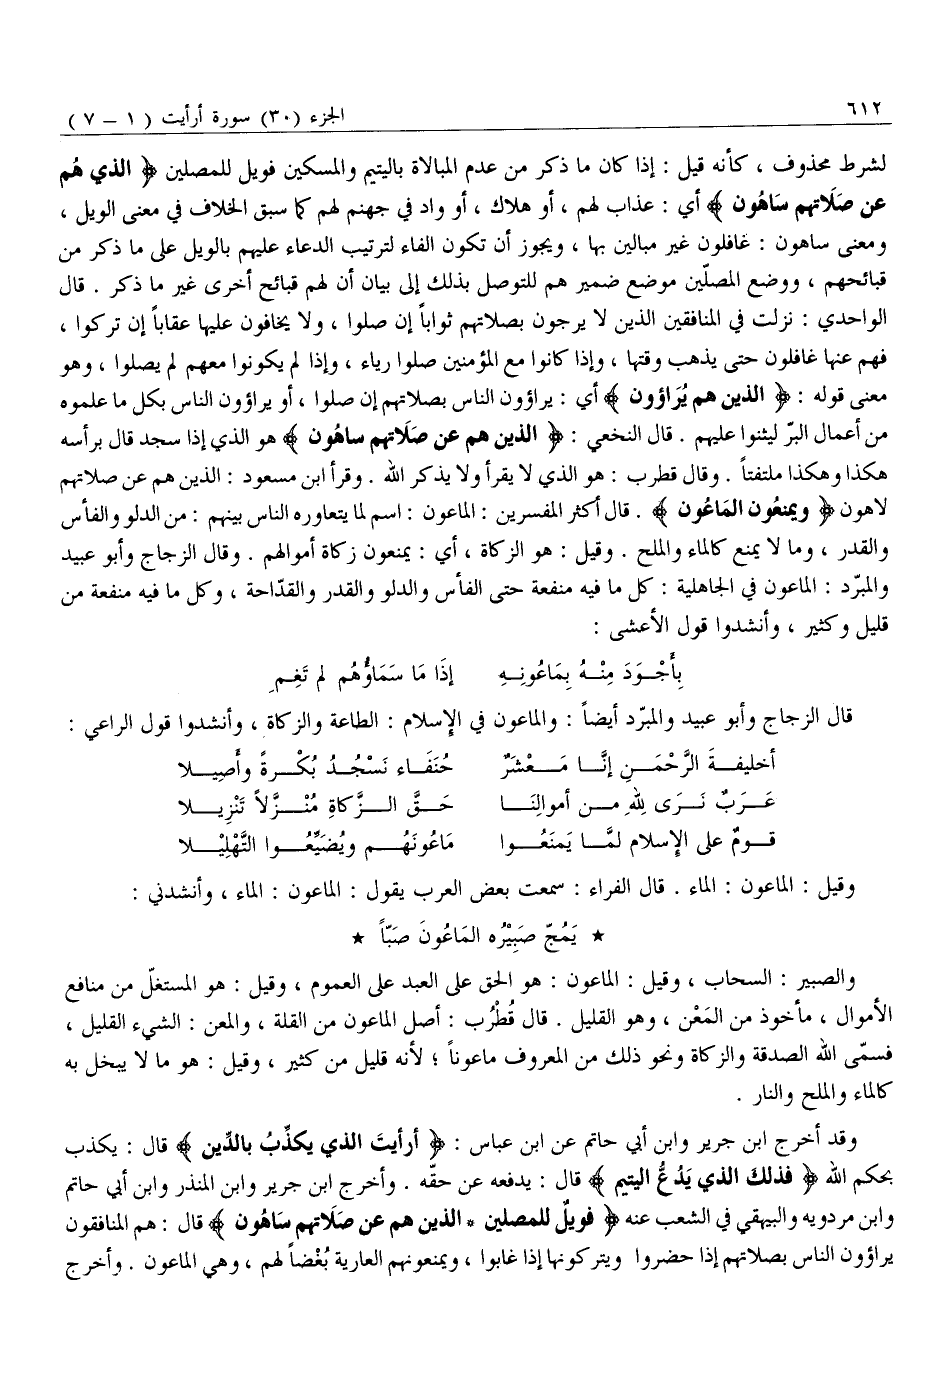 ٦١٢
الجزء (٣٠) سورة أرأيت ( ١ – ٧ )
لشرط محذوف ، كأنه قيل : إذا كان ما ذكر من عدم المبالاة باليتيم والمسكين فويل للمصلين ﴿ الذي هم
عن صَلَاتهم سَاهُون ﴾ أي : عذاب لهم ، أو هلاك ، أو واد في جهنم لهم كما سبق الخلاف في معنى الويل ،
ومعنى ساهون : غافلون غير مبالين بها ، ويجوز أن تكون الفاء لترتيب الدعاء عليهم بالويل على ما ذكر من
قبائحهم ، ووضع المصلّين موضع ضمير هم للتوصل بذلك إلى بيان أن لهم قبائح أخرى غير ما ذكر . قال
الواحدي : نزلت في المنافقين الذين لا يرجون بصلاتهم ثواباً إن صلوا ، ولا يخافون عليها عقاباً إن تركوا ،
فهم عنها غافلون حتى يذهب وقتها ، وإذا كانوا مع المؤمنين صلوا رياء ، وإذا لم يكونوا معهم لم يصلوا ، وهو
معنى قوله : ﴿ الذين هم يُرَاؤون ﴾ أي : يراؤون الناس بصلاتهم إن صلوا ، أو يراؤون الناس بكل ما علموه
من أعمال البرّ ليثنوا عليهم . قال النخعي : ﴿ الذين هم عن صَلَاتهم ساهُون ﴾ هو الذي إذا سجد قال برأسه
هكذا وهكذا ملتفتاً . وقال قطرب : هو الذي لا يقرأ ولا يذكر الله . وقرأ ابن مسعود : الذين هم عن صلاتهم
لاهون ﴿ ويمنعُون المَاعُون ﴾ . قال أكثر المفسرين : الماعون : اسم لما يتعاوره الناس بينهم : من الدلو والفأس
والقدر ، وما لا يمنع كالماء والملح . وقيل : هو الزكاة ، أي : يمنعون زكاة أموالهم . وقال الزجاج وأبو عبيد
والمبرّد : الماعون في الجاهلية : كل ما فيه منفعة حتى الفأس والدلو والقدر والقدّاحة ، وكل ما فيه منفعة من
قليل وكثير ، وأنشدوا قول الأعشى :
بِأَجْوَدَ مِنْهُ بِمَاعُونِهِ إذَا مَا سَمَاؤُهُم لم تَغِمِ
قال الزجاج وأبو عبيد والمبرّد أيضاً : والماعون في الإسلام : الطاعة والزكاة ، وأنشدوا قول الراعي :
أخليفةَ الرَّحْمَنِ إنَّا مَعْشرٌ حُنَفَاء نَسْجُدُ بُكْرةً وأَصِيلا
عَرَبٌ نَرَى للهِ من أموالنَا حَقَّ الزَّكاةِ مُنْزلاً تَنْزِيلا
قومٌ على الإسلام لمَّا يَمنَعُوا مَاعُونَهُم ويُضَيِّعُوا التَّهْلِيْلا
وقيل : الماعون : الماء . قال الفراء : سمعت بعض العرب يقول : الماعون : الماء ، وأنشدني :
★ يَمُجّ صبِيْرُه المَاعُونَ صَبّاً ★
والصبير : السحاب ، وقيل : الماعون : هو الحق على العبد على العموم ، وقيل : هو المستغلّ من منافع
الأموال ، مأخوذ من المَعْن ، وهو القليل . قال قُطْرُب : أصل الماعون من القلة ، والمعن : الشيء القليل ،
فسمّى الله الصدقة والزكاة ونحو ذلك من المعروف ماعوناً ؛ لأنه قليل من كثير ، وقيل : هو ما لا يبخل به
كالماء والملح والنار .
وقد أخرج ابن جرير وابن أبي حاتم عن ابن عباس : ﴿ أرأيتَ الذي يكذِّبُ بالدِّين ﴾ قال : يكذب
بحكم الله ﴿ فذلكَ الذي يَدُعُّ اليتيم ﴾ قال : يدفعه عن حقّه . وأخرج ابن جرير وابن المنذر وابن أبي حاتم
وابن مردويه والبيهقي في الشعب عنه ﴿ فويلٌ للمصلين * الذين هم عن صَلَاتهم سَاهُون ﴾ قال : هم المنافقون
يراؤون الناس بصلاتهم إذا حضروا ويتركونها إذا غابوا ، ويمنعونهم العارية بُغْضاً لهم ، وهي الماعون . وأخرج